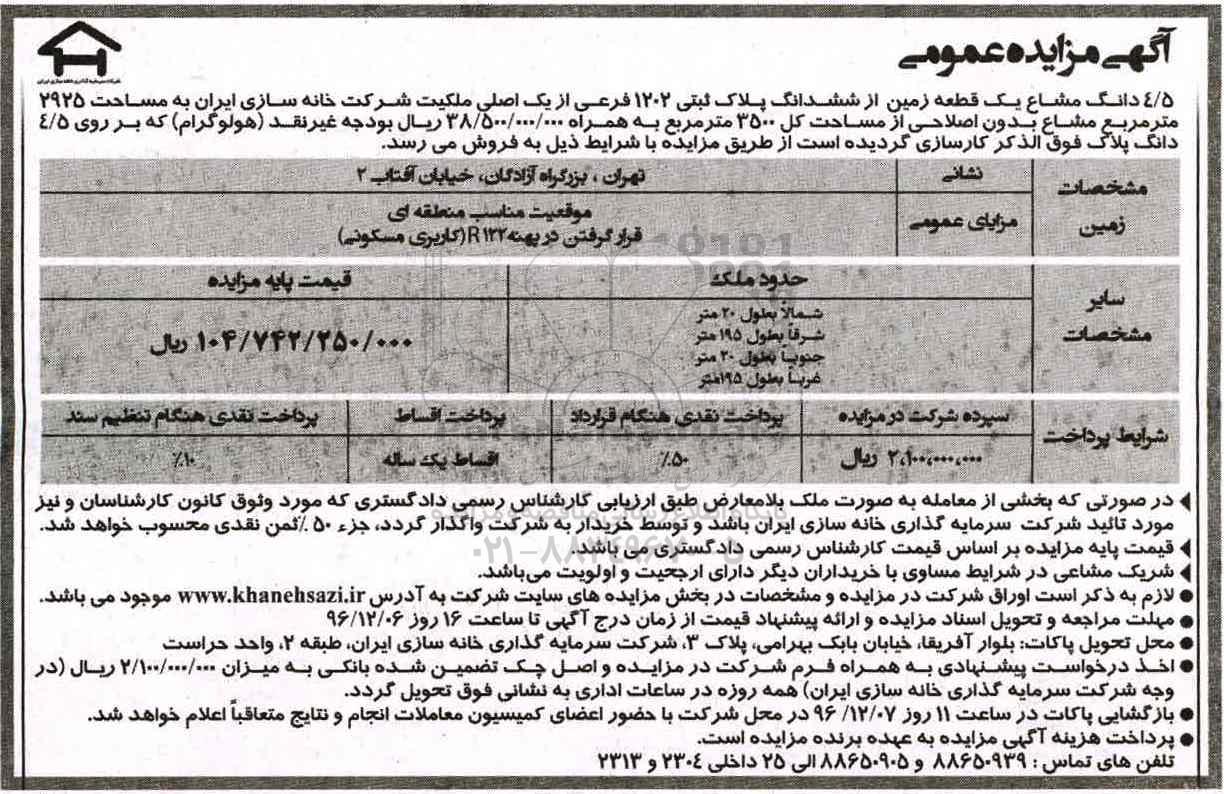 آگهی مزایده عمومی
شرکت سرمایه گذاری خانه سازی ایران
۴/۵ دانگ مشاع یک قطعه زمین از ششدانگ پلاک ثبتی ۱۲۰۲ فرعی از یک اصلی ملکیت شرکت خانه سازی ایران به مساحت ۲۹۲۵
مترمربع مشاع بدون اصلاحی از مساحت کل ۳۵۰۰ مترمربع به همراه ۳۸/۵۰۰/۰۰۰/۰۰۰ ریال بودجه غیرنقد (هولوگرام) که بر روی ۴/۵
دانگ پلاک فوق الذکر کارسازی گردیده است از طریق مزایده با شرایط ذیل به فروش می رسد.
مشخصات زمین
نشانی
تهران ، بزرگراه آزادگان، خیابان آفتاب ۲
مزایای عمومی
موقعیت مناسب منطقه ای
قرار گرفتن در پهنه R۱۲۲(کاربری مسکونی)
سایر مشخصات
حدود ملک
قیمت پایه مزایده
شمالاً بطول ۲۰ متر
شرقاً بطول ۱۹۵ متر
جنوباً بطول ۲۰ متر
غرباً بطول ۱۹۵متر
۱۰۴/۷۴۲/۲۵۰/۰۰۰ ریال
شرایط پرداخت
سپرده شرکت در مزایده
پرداخت نقدی هنگام قرارداد
پرداخت اقساط
پرداخت نقدی هنگام تنظیم سند
۲,۱۰۰,۰۰۰,۰۰۰ ریال
۵۰٪
اقساط یک ساله
۱۰٪
در صورتی که بخشی از معامله به صورت ملک بلامعارض طبق ارزیابی کارشناس رسمی دادگستری که مورد وثوق کانون کارشناسان و نیز
مورد تائید شرکت سرمایه گذاری خانه سازی ایران باشد و توسط خریدار به شرکت واگذار گردد، جزء ۵۰ ٪ثمن نقدی محسوب خواهد شد.
قیمت پایه مزایده بر اساس قیمت کارشناس رسمی دادگستری می باشد.
شریک مشاعی در شرایط مساوی با خریداران دیگر دارای ارجحیت و اولویت می‌باشد.
● لازم به ذکر است اوراق شرکت در مزایده و مشخصات در بخش مزایده های سایت شرکت به آدرس www.khanehsazi.ir موجود می باشد.
● مهلت مراجعه و تحویل اسناد مزایده و ارائه پیشنهاد قیمت از زمان درج آگهی تا ساعت ۱۶ روز ۹۶/۱۲/۰۶
● محل تحویل پاکات: بلوار آفریقا، خیابان بابک بهرامی، پلاک ۳، شرکت سرمایه گذاری خانه سازی ایران، طبقه ۲، واحد حراست
● اخذ درخواست پیشنهادی به همراه فرم شرکت در مزایده و اصل چک تضمین شده بانکی به میزان ۲/۱۰۰/۰۰۰/۰۰۰ ریال (در
وجه شرکت سرمایه گذاری خانه سازی ایران) همه روزه در ساعات اداری به نشانی فوق تحویل گردد.
● بازگشایی پاکات در ساعت ۱۱ روز ۹۶/۱۲/۰۷ در محل شرکت با حضور اعضای کمیسیون معاملات انجام و نتایج متعاقباً اعلام خواهد شد.
● پرداخت هزینه آگهی مزایده به عهده برنده مزایده است.
تلفن های تماس : ۸۸۶۵۰۹۳۹ و ۸۸۶۵۰۹۰۵ الی ۲۵ داخلی ۲۳۰۴ و ۲۳۱۳